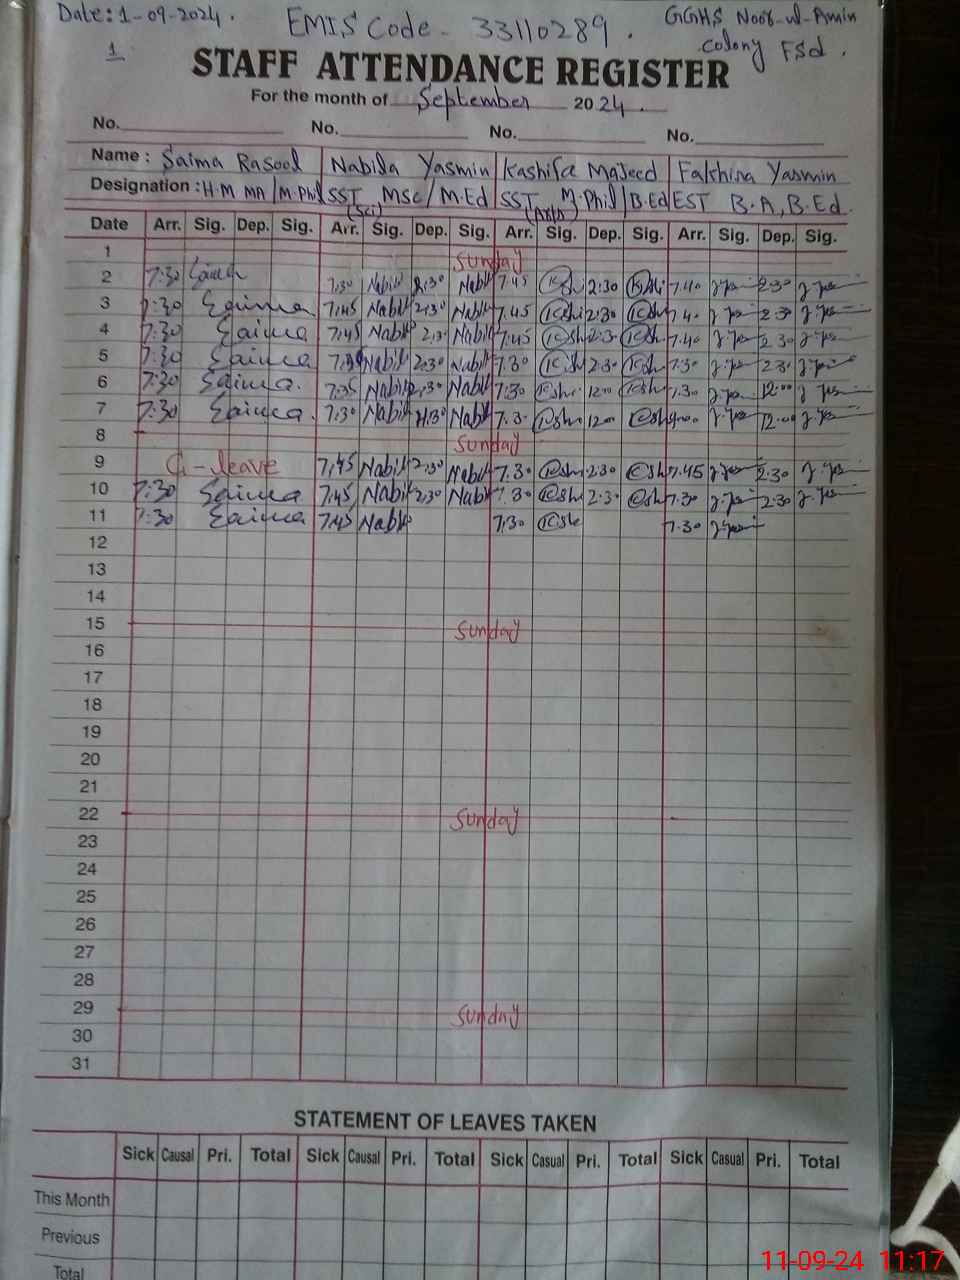 Date: 1-09-2024. EMIS Code - 33110289. GGHS Noor-ul-Amin
1 colony Fsd.
STAFF ATTENDANCE REGISTER
For the month of September 2024.
No. No. No. No.
Name: Saima Rasool Nabila Yasmin Kashifa Majeed Fakhira Yasmin
Designation: H.M MA/M.Phil SST MSc/M.Ed SST M.Phil/B.Ed EST B.A, B.Ed.
(Sci) (Arts)
Date Arr. Sig. Dep. Sig. Arr. Sig. Dep. Sig. Arr. Sig. Dep. Sig. Arr. Sig. Dep. Sig.
1 Sunday
2 7:30 7:30 Nabil 2:30 Nabil 7.45 2:30 7.40 2:30
3 7:30 Saima 7:45 Nabil 2:30 Nabil 7.45 2:30 7.40 2:30
4 7:30 Saima 7:45 Nabil 2:30 Nabil 7:45 2:30 7.40 2:30
5 7:30 Saima Nabil 2:30 Nabil 7:30 2:30 7:30 2:30
6 7:30 Saima. 7:35 Nabil Nabil 7:30 1200 7.30 12:00
7 7:30 Saima. 7:30 Nabil Nabil 7.30 1200 12:00
8 Sunday
9 C-leave 7:45 Nabil 2:30 Nabil 7.30 2:30 7.45 2:30
10 7:30 Saima 7:45 Nabil 2:30 Nabil 7.30 2:30 7.30 2:30
11 7:30 Saima 7:45 Nabil 7:30 7.30
12
13
14
15 Sunday
16
17
18
19
20
21
22 Sunday
23
24
25
26
27
28
29 Sunday
30
31
STATEMENT OF LEAVES TAKEN
Sick Causal Pri. Total Sick Causal Pri. Total Sick Casual Pri. Total Sick Casual Pri. Total
This Month
Previous
Total
11-09-24 11:17